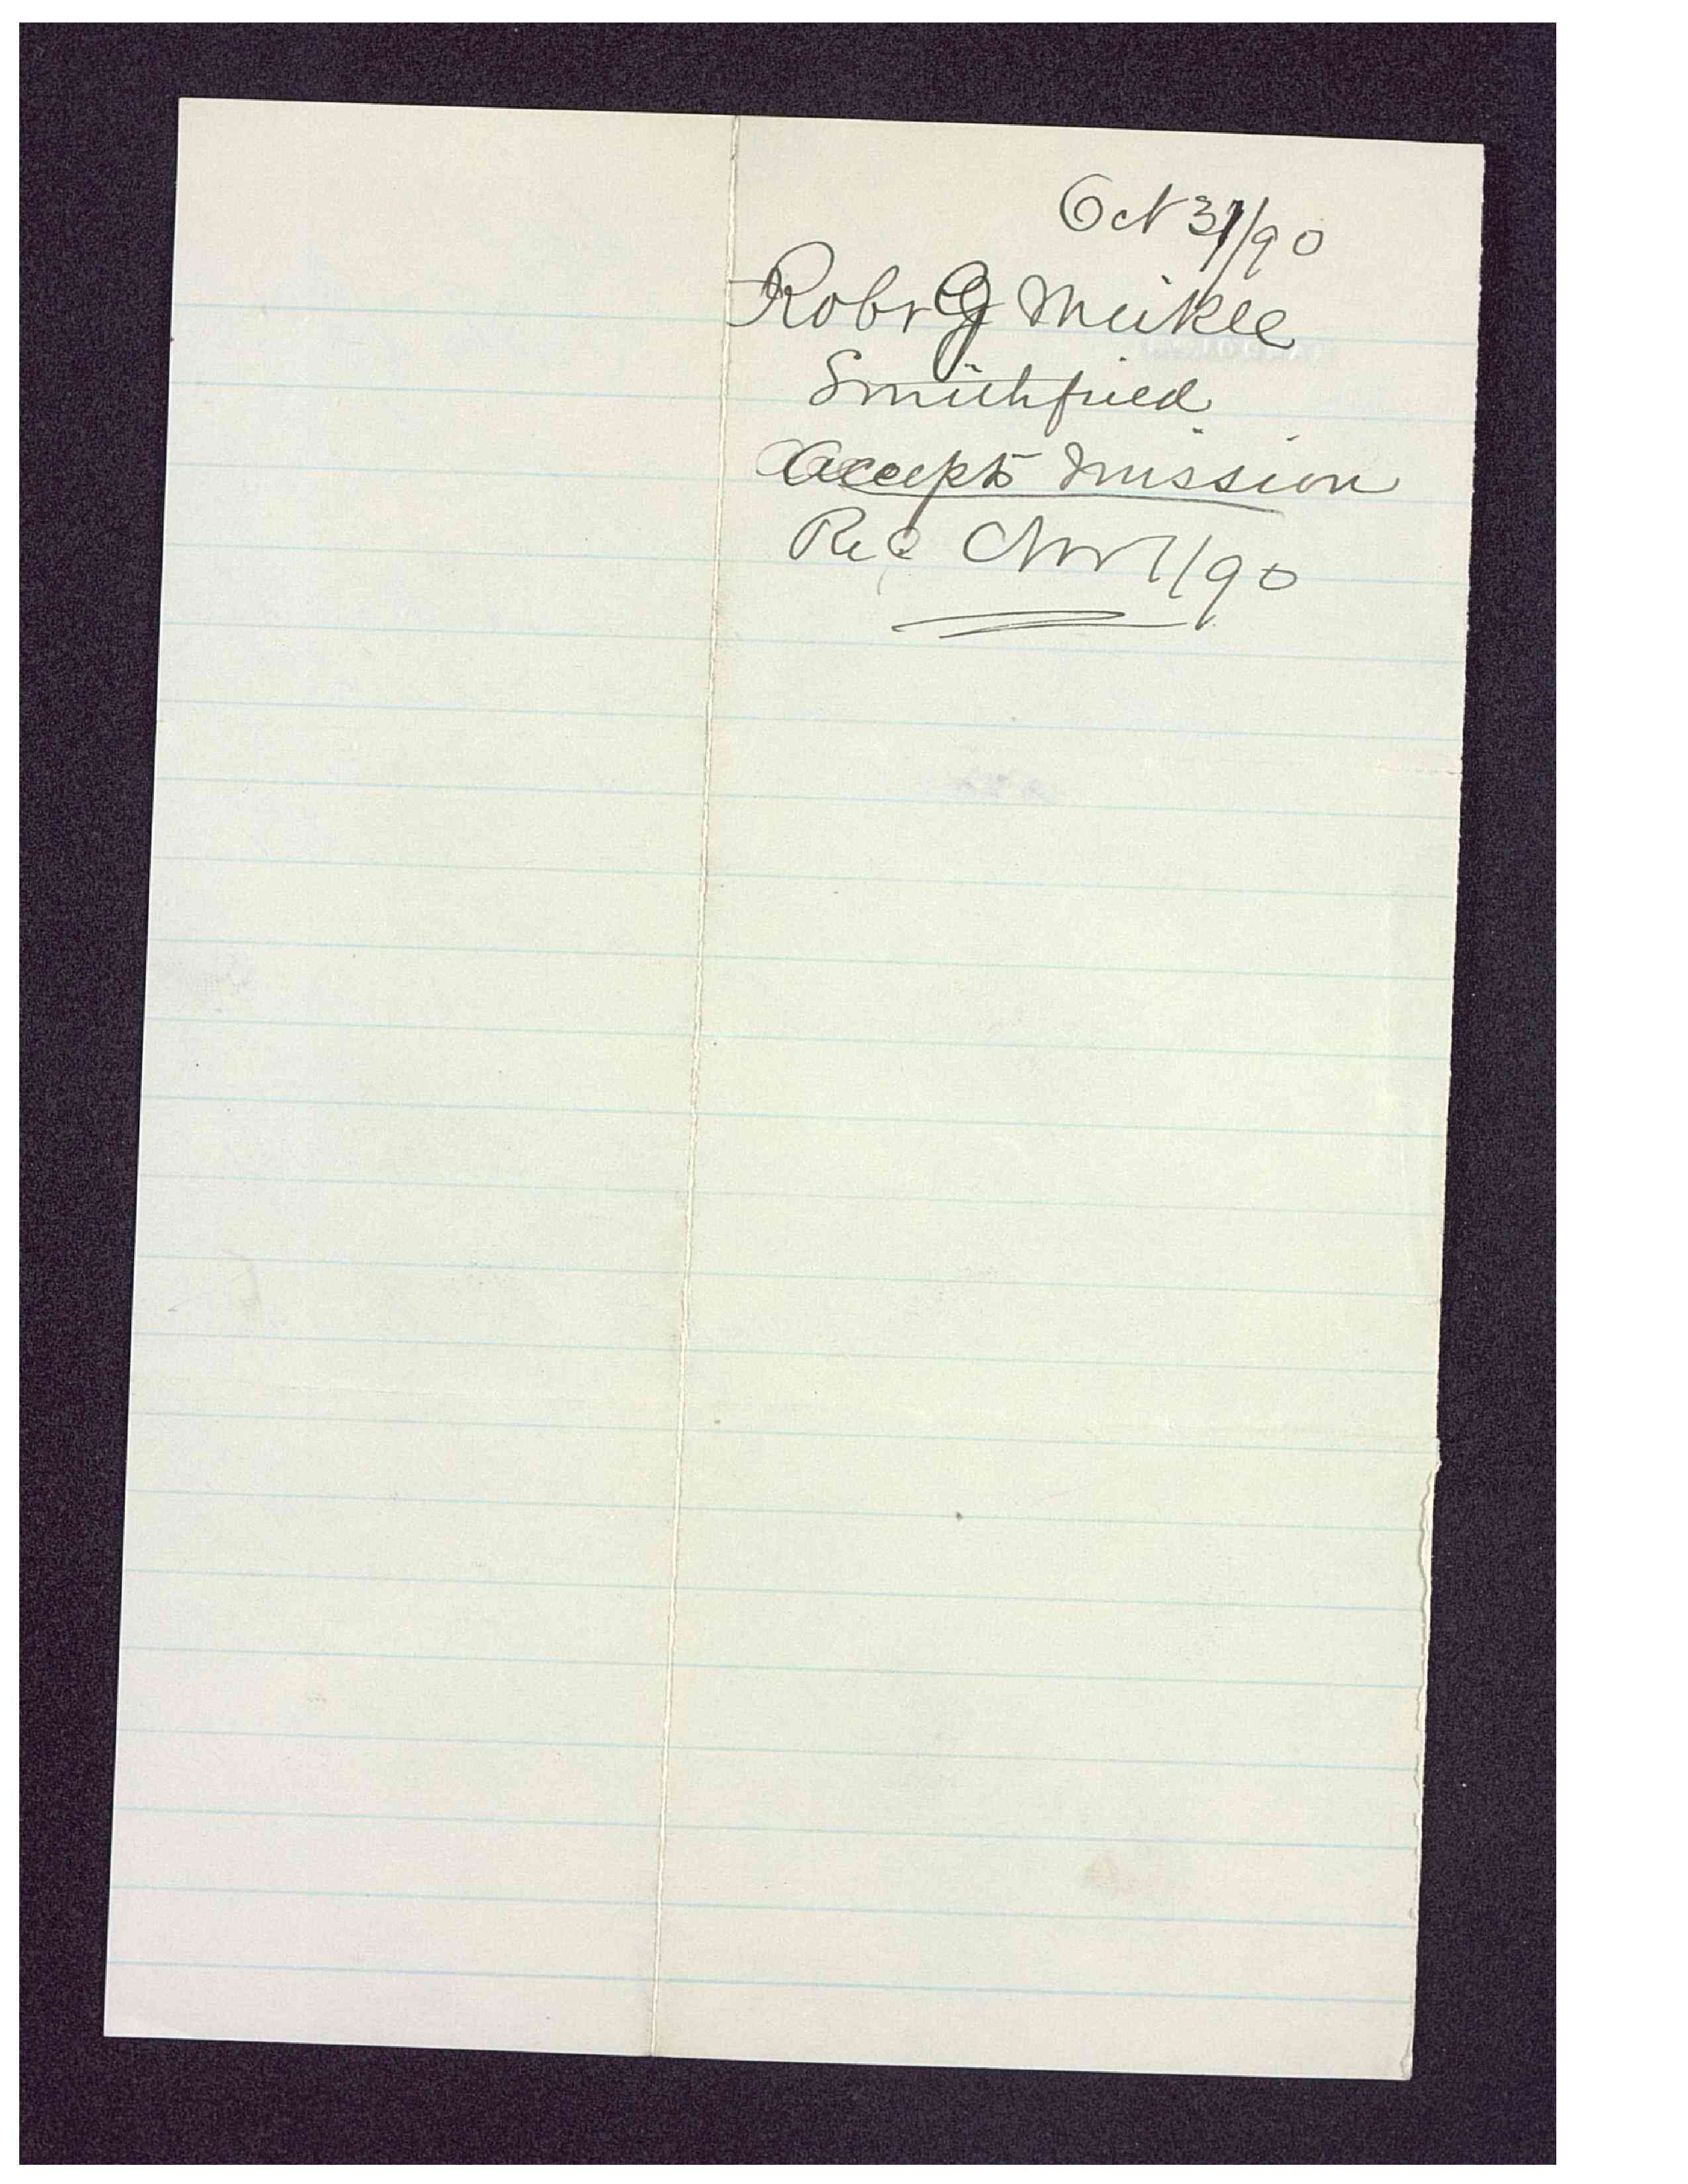 Oct 31/90
Robt G Meikle
Smithfield
Accepts mission
Rec Nov 1/90